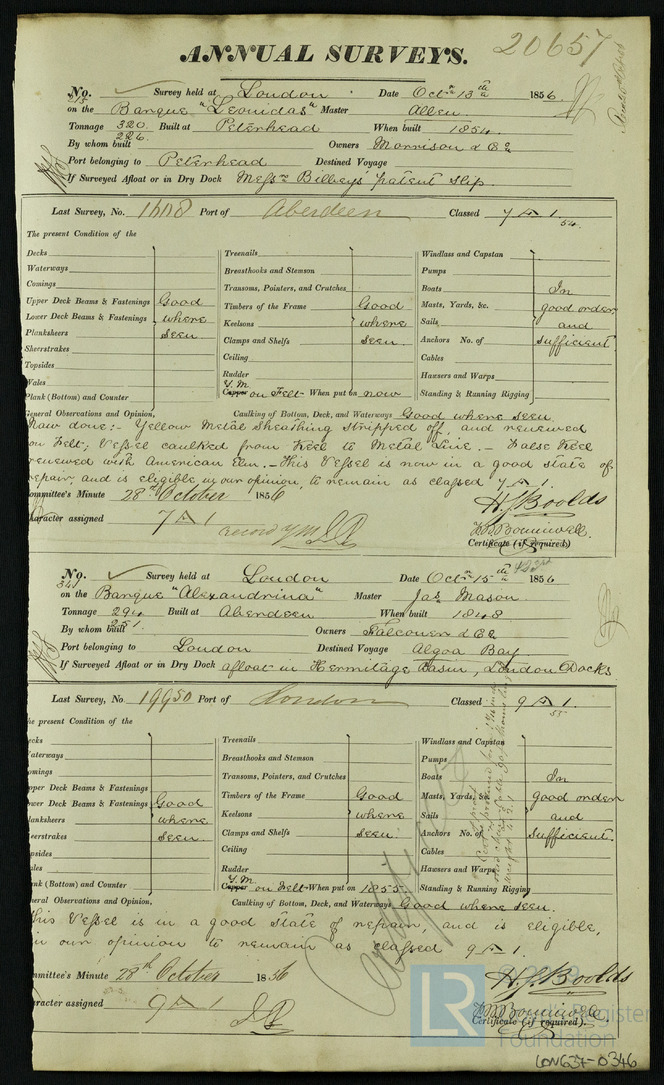 20657
ANNUAL SURVEYS.
No. 215 Survey held at London Date Octr 13th 1856
on the Barque "Leonidas" Master Allen
Tonnage 320 Built at Peterhead When built 1854
226
By whom built Owners Morrison & Co
Port belonging to Peterhead Destined Voyage
If Surveyed Afloat or in Dry Dock Messrs Bilbeys' patent slip.
Last Survey, No. 1608 Port of Aberdeen Classed 7 A 1
54
The present Condition of the
Decks Treenails Windlass and Capstan
Waterways Breasthooks and Stemson Pumps
Comings Transoms, Pointers, and Crutches Boats In
Upper Deck Beams & Fastenings Good Timbers of the Frame Good Masts, Yards, &c. good order
Lower Deck Beams & Fastenings where Keelsons where Sails and
Planksheers seen Clamps and Shelfs seen. Anchors No. of sufficient
Sheerstrakes Ceiling Cables
Topsides Rudder Hawsers and Warps
Wales Y.M.
Plank (Bottom) and Counter Copper on Felt When put on now Standing & Running Rigging
General Observations and Opinion, Caulking of Bottom, Deck, and Waterways Good where seen
Now done:- Yellow Metal Sheathing stripped off, and renewed
on Felt; Vessel caulked from Keel to Metal Line. - False Keel
renewed with American Elm. - This Vessel is now in a good state of
repair, and is eligible, in our opinion, to remain as classed 7 A 1
Committee's Minute 28th October 1856 H. J. Boolds
Character assigned 7 A 1 record YM
Certificate (if required)
No. 341 Survey held at London Date Octr 15th 1856
on the Barque "Alexandrina" Master Jas Mason
Tonnage 294 Built at Aberdeen When built 1848
251
By whom built Owners Falconer & Co
Port belonging to London Destined Voyage Algoa Bay
If Surveyed Afloat or in Dry Dock afloat in Hermitage Basin, London Docks
Last Survey, No. 19950 Port of London Classed 9 A 1.
55
he present Condition of the
ecks Treenails Windlass and Capstan
aterways Breasthooks and Stemson Pumps
omings Transoms, Pointers, and Crutches Boats In
pper Deck Beams & Fastenings Good Timbers of the Frame Good Masts, Yards, &c. good order
ower Deck Beams & Fastenings where Keelsons where Sails and
lanksheers seen Clamps and Shelfs seen. Anchors No. of sufficient.
eerstrakes Ceiling Cables
psides Rudder Hawsers and Warps
ales Y.M.
nk (Bottom) and Counter Copper on Felt When put on 1855 Standing & Running Rigging
neral Observations and Opinion, Caulking of Bottom, Deck, and Waterways Good where seen.
This Vessel is in a good state of repair, and is eligible,
in our opinion to remain as classed 9 A 1.
mmittee's Minute 28th October 1856 H. J. Boolds
aracter assigned 9 A 1
Certificate (if required).
LR
Foundation
LON637-0346